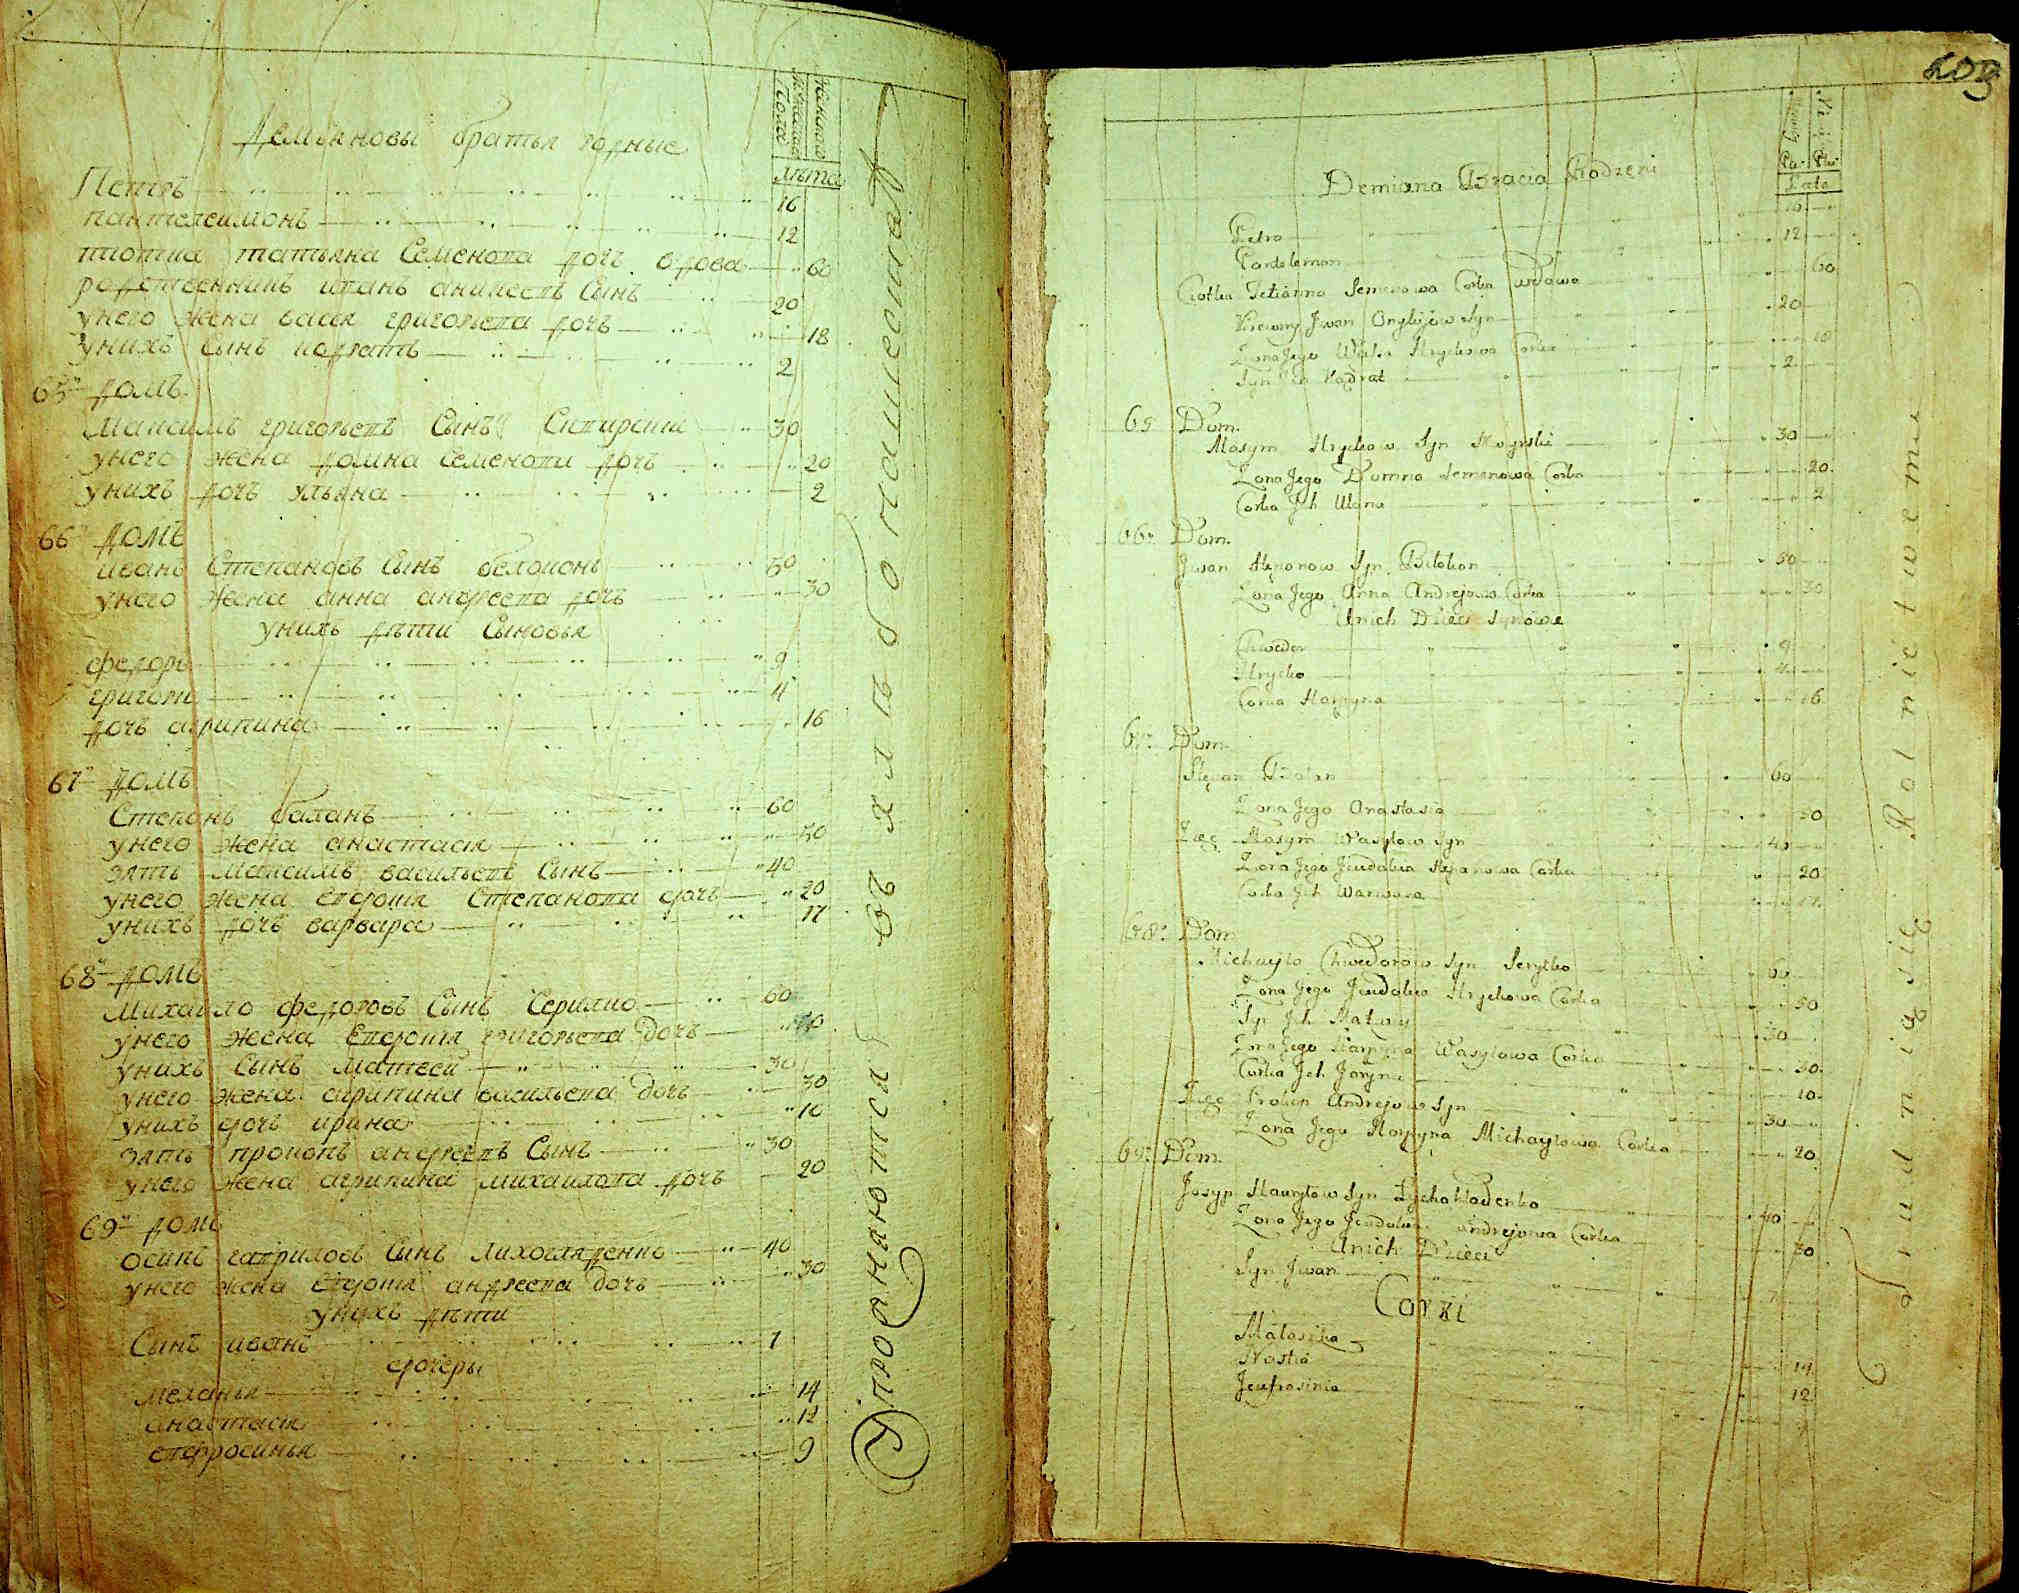 Женскаго
Мужеска
Пола
Лѣта
Демьяновы братья родные
Петръ 16
пантелеимонъ 12
тютка татьяна Семенова дочь вдова 60
родственникъ иванъ Сынъ 20
унего жена васса григорьева дочь 18
унихъ Сынъ кодратъ 2
65й домъ
Максимъ григорьевъ Сынъ 30
унего жена домна Семенова дочь 20
унихъ дочь ульяна 2
66й домъ
иванъ Степановъ Сынъ белоконь 50
унего жена анна андреева дочь 30
унихъ дѣти Сыновья
федоръ 9
григори 4
дочь агрипина 16
67й домъ
Степанъ баланъ 60
унего жена анастасия 50
зять максимъ васильевъ Сынъ 40
унего жена евдокия Степанова дочь 20
унихъ дочь варвара 17
68й домъ
Михаило федоровъ Сынъ Серилко 60
унего жена Евдокия григорьева дочь 50
унихъ Сынъ матвеи 30
унего жена агрипина васильева дочь 30
унихъ дочь ирина 10
зять прокопъ андреевъ Сынъ 30
унего жена агрипина михаилова дочь 20
69й домъ
осипъ гавриловъ Сынъ лихогляденко 40
унего жена евдокия андреева дочь 30
унихъ дѣти
Сынъ иванъ 7
дочеры
меланья 14
анастасия 12
евфросинья 9
Упражняются въ хлѣбопашествѣ
203
Lata
Demiana Bracia Rodzeni
Petro 16
Pantelemon 12
Ciotka Tetianna Semenowa Corka wdowa 60
Krewny Jwan Syn 20
Zona Jego Waska Hryckowa Corka 18
Syn Ich Kądrat 2
65 Dom.
Maxym Hryckow Syn 30
Zona Jego Domna Semenowa Corka 20
Corka Jch Ulana 2
66. Dom.
Jwan Stepanow Syn Bilokon 50
Zona Jego Anna Andrejowa Corka 30
Unich Dzieci Synowe
Chwedor 9
Hrycko 4
Corka Harpyna 16
67. Dom.
Stepan Balan 60
Zona Jego Anastasia 50
Zięć Maxym Wasylow Syn 40
Zona Jego Jeudokia Stepanowa Corka 20
Corka Jch Warwara 17
68. Dom
Michayło Chwedorow Syn Serylko 60
Zona Jego Jeudokia Hryckowa Corka 50
Syn Jch Matwiy 30
Zona Jego Harpyna Wasylowa Corka 30
Corka Jch Jaryna 10
Zięć Prokop Andrejow Syn 30
Zona Jego Harpyna Michayłowa Corka 20
69. Dom
Josyp Hawryłow Syn Lychohladenko 40
Zona Jego Jeudokia Andrejowa Corka 30
Unich Dzieci
Syn Jwan 7
Corki
Małaszka 14
Nastia 12
Jeufrosinia
Trudnią się Rolnictwemi